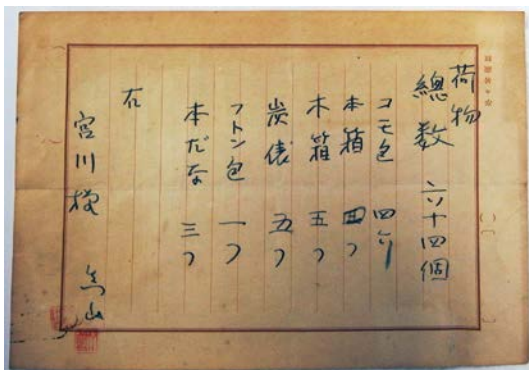 荷物
總数 六十四個
コモ包 四六
本箱 四つ
木箱 五つ
炭俵 五つ
フトン包 一つ
本だな 三つ
右
宮川様